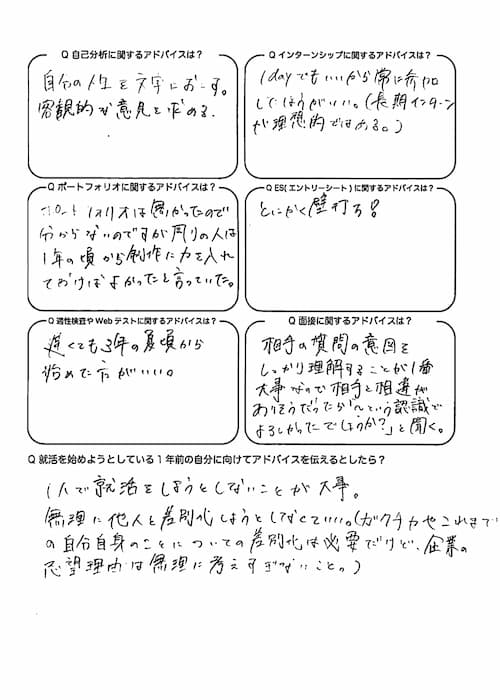 Q 自己分析に関するアドバイスは？
自分の人生を文字におこす。
客観的な意見を求める.
Q インターンシップに関するアドバイスは？
1dayでもいいから常に参加
したほうがいい。(長期インターン
が理想的ではある。)
Q ポートフォリオに関するアドバイスは？
ポートフォリオは無かったので
分からないのですが周りの人は
1年の頃から創作に力を入れ
ておけばよかったと言っていた。
Q ES(エントリーシート)に関するアドバイスは？
とにかく壁打ち!
Q 適性検査やWebテストに関するアドバイスは？
遅くても3年の夏頃から
始めた方がいい。
Q 面接に関するアドバイスは？
相手の質問の意図を
しっかり理解することが1番
大事なので相手と相違が
ありそうだったら「〜という認識で
よろしかったでしょうか?」と聞く。
Q 就活を始めようとしている1年前の自分に向けてアドバイスを伝えるとしたら？
1人で就活をしようとしないことが大事。
無理に他人と差別化しようとしなくていい。(ガクチカやこれまで
の自分自身のことについての差別化は必要だけど、企業の
志望理由は無理に考えすぎないこと。)